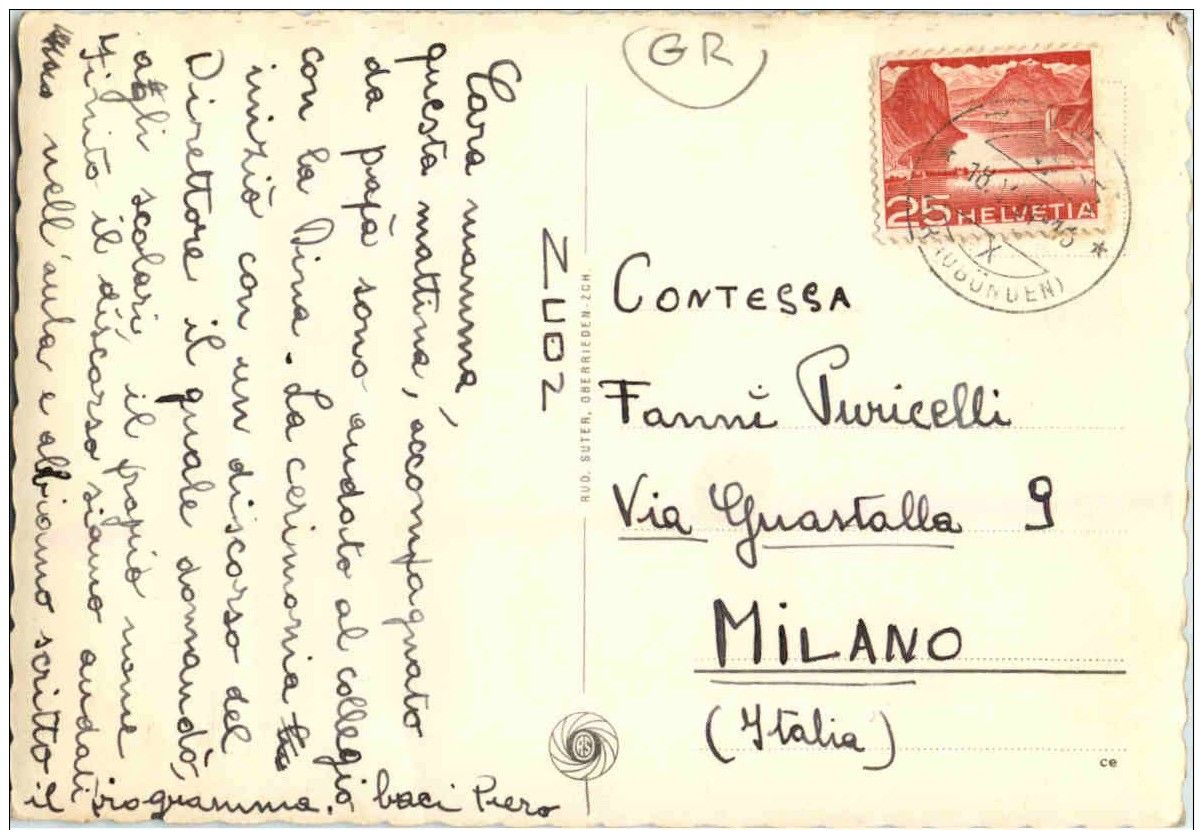 Cara mamma,
questa mattina, accompagnato
da papà sono andato al collegio
con la Dina. La cerimonia
iniziò con un discorso del
Direttore il quale domandò,
agli scolari il propio nome
Finito il discorso siamo andati
nell'aula e abbiamo scritto
il programma. baci Piero
ZUOZ
RUD. SUTER, OBERRIEDEN-ZCH.
GR
25 HELVETIA
18.
(GRAUBÜNDEN)
CONTESSA
Fanni Puricelli
Via Guastalla 9
MILANO
(Italia)
ce